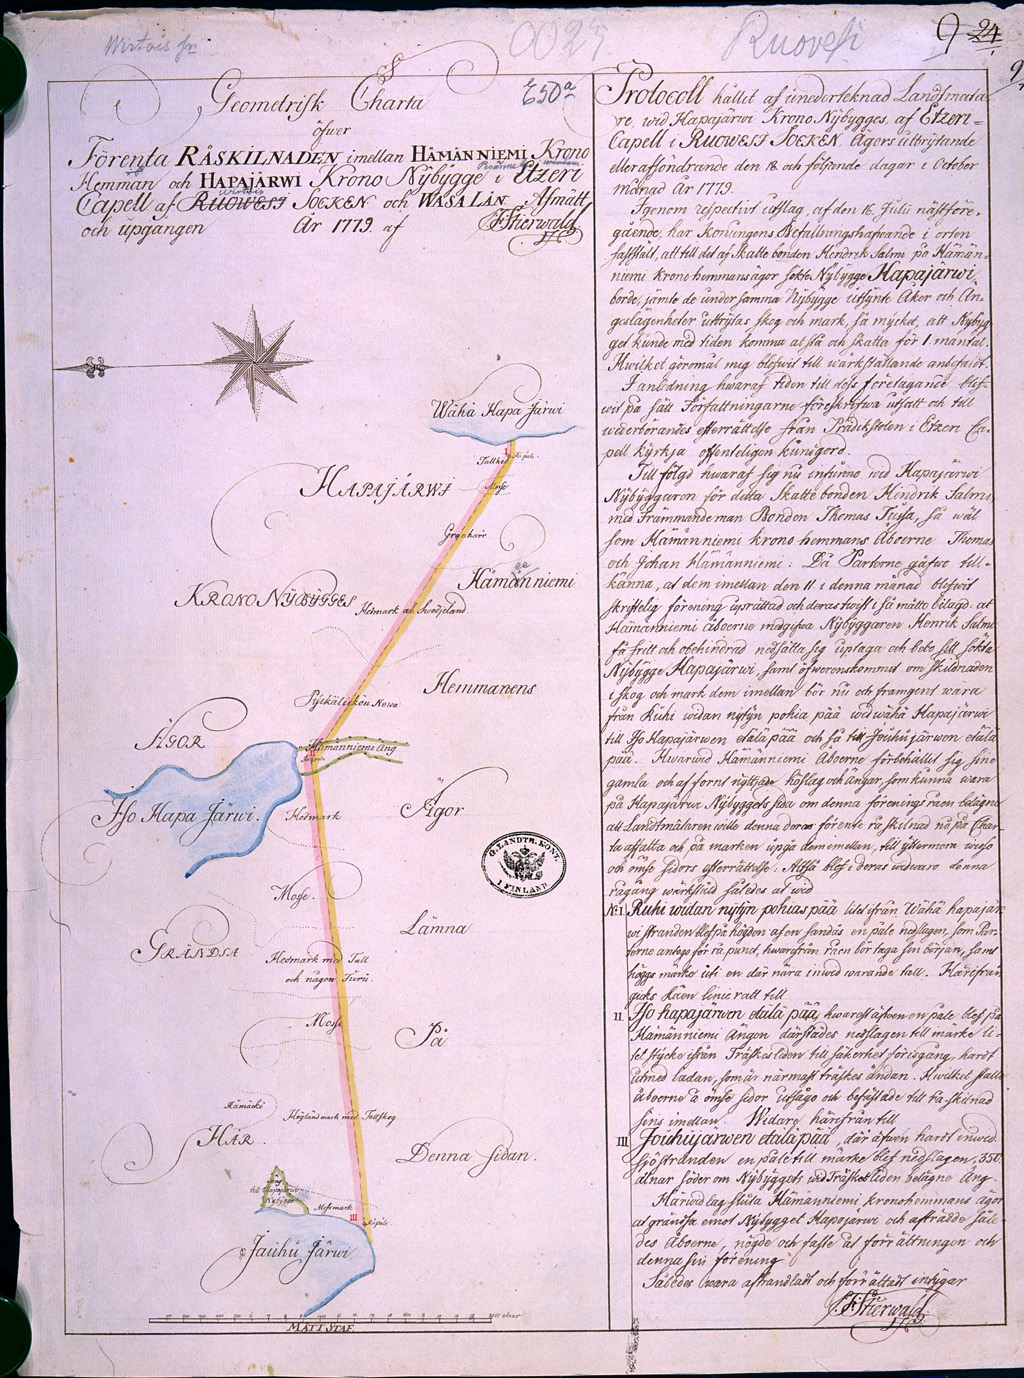 Wirtois sn
0024
Ruovesi
9 24
9
Geometrisk Charta
E50a
öfwer
Förenta RÅSKILNADEN imellan HÄMÄNNIEMI Krono
Hemman och HAPAJÄRWI Krono Nÿbÿgge i Etzeri
Wirtois
Capell af RUOWESI SOCKEN och WASA LÄN Afmätt
och upgången År 1779 af F Stierwald
Wähä Hapa Järwi
Tallhed
Råpåle
HAPAJÄRWI
Mosse
Grankärr
Hämänniemi
KRONO NŸBŸGGES
Hedmark at Swedjeland
Hemmanens
ÄGOR
Hämänniemi Äng
Iso Hapa Järwi.
Hedmark
Ägor
Mosse.
GRÄNDSA
Lämna
Hedmark med Tall
och någon Furu.
Mosse
På
Rämäckö
Höglandmark med Tallskog
HÄR.
Denna Sidan.
Äng
till Hapajärwi
Nybygge
Mossmark
III
Råpåle
Jauhu Järwi
MÅTT STAF
G. LANDTM. KONT.
I FINLAND
Protocoll hållit af underteknad Landtmäta-
re, wid Hapajärwi Krono Nÿbygges, af Etzeri-
Capell i RUOWESI SOCKEN, Ägors utbrytande
eller afsöndrande den 18. och följande dagar i October
månad År 1779.
Igenom respectivt utslag, af den 16. Julii nästföre-
gående, har Konungens Befallningshafwande i orten
fastställt, att till det af Skatte bonden Hindrik Salmi på Hämän-
niemi krono hemmans ägor sökte Nÿbygge Hapajärwi,
borde, jämte de under samma Nybygge utsynte Åker och Än-
geslägenheter utbrytas skog och mark, så mycket, att Nybyg-
get kunde med tiden komma at stå och skatta för 1 mantal.
Hwilket göromål mig blefwit till wärkställande anbefalt.
I anledning hwaraf tiden till dess företagande blef-
wit på sätt Författningarne föreskrifwa utsatt och till
wederbörandes efterrättelse från Prädikstolen i Etzeri Ca-
pell kyrkja offenteligen kungjord.
Till följd hwaraf sig nu infunno wid Hapajärwi
Nybyggaren för detta Skatte bonden Hindrik Salmi
med Främmande man Bonden Thomas Tussa, så wäl
som Hämänniemi krono hemmans Åboerne Thomas
och Johan Hämänniemi: Då Parterne gåfwo till-
känna, at dem imellan den 11. i denna månad blefwit
skriftelig förening uprättad och deras twist i så måtto bilagd: at
Hämänniemi åboerne medgifwa Nybyggaren Henrik Salmi
få fritt och obehindrad nedsätta sig uptaga och bebo sitt sökta
Nybygge Hapajärwi, samt öfwerenskommit om skildnaden
i skog och mark dem imellan bör nu och framgent wara
från Ruhi widan nÿtÿn pohia pää wid wähä Hapajärwi
till Iso Hapajärwen etälä pää och så till Jouhujärwen etälä
pää. Hwarwid Hämänniemi Åboerne förbehållit sig sine
gamla och af forna nyttjade höslag och ängar, som kunna wara
på Hapajärwi Nybyggets sida om denna förenings råen belägne
att Landtmätaren wille denna deras förente rå skilnad nu på Char-
ta affatta och på marken upgå dem emellan, till yttermera wisso
och ömse sidors efterrättelse. Altså blef i deras widwaro denna
rågång wärkställd således at wid
N:I. Ruhi widan nÿtÿn pohias pää litet ifrån Wähä hapajär-
wi stranden blef på högden af en sandås en påle nedslagen, som Par-
terne antogo för rå punct, hwarifrån råen bör taga sin början, samt
höggs märke uti en där nära inwid warande tall. Härifrån
gicks råen linie rätt till
II. Iso hapajärwen etälä pää, hwarest äfwen en påle blef på
Hämänniemi Ängen därstädes nedslagen till märke li-
tet stycke ifrån Träskes liden till säkerhet för isgång, hardt
utmed ladan, som är närmast träskes ändan. Hwilket ställe
åboerne å ömse sidor utsågo och befästade till rå skilnad
sins imellan. Widare härifrån till
III. Jouhujärwen etälä pää, där äfwen hardt inwid
sjöstranden en påle till märke blef nedslagen, 350
alnar söder om Nybyggets wid Träskesliden belägne Äng.
Härwid lag sluta Hämänniemi kronohemmans ägor
at gräntsa emot Nybygget Hapajärwi och afträdde såle-
des Åboerne, nögde och fasta wid förrättningen och
denna sin förening
Således wara afhandladt och förrättadt intygar
F Stierwald